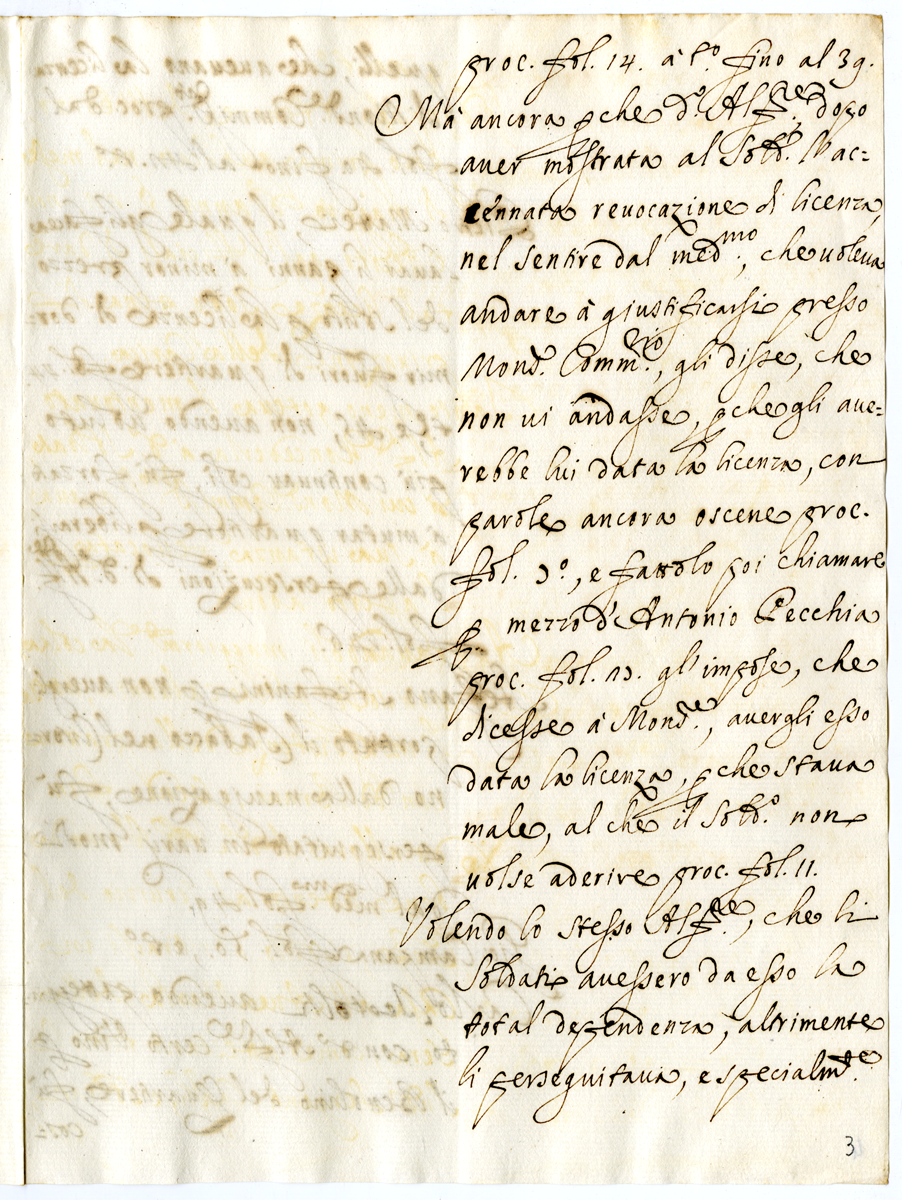 proc. fol. 14. à t.º fino al 39.
Mà ancora p che d.º Alf.re dopo
aver mostrata al Sold.º l'ac=
cennata revocazione di licenza,
nel sentire dal med.mo, che voleva
andare à giustificarsi presso
Mons.r Comm.rio, gli disse, che
non vi andasse, p che gli ave=
rebbe lui data la licenza, con
parole ancora oscene proc.
fol. 9º, e fattolo poi chiamare
p mezzo d'Antonio Pecchia
proc. fol. 13. gl'impose, che
dicesse à Mons.re, avergli esso
data la licenza, p che stava
male, al che il Sold.º non
volse aderire proc. fol. 11.
Volendo lo stesso Alf.re, che li
Soldati avessero da esso la
total dependenza, altrimente
li perseguitava, e specialm.te
3